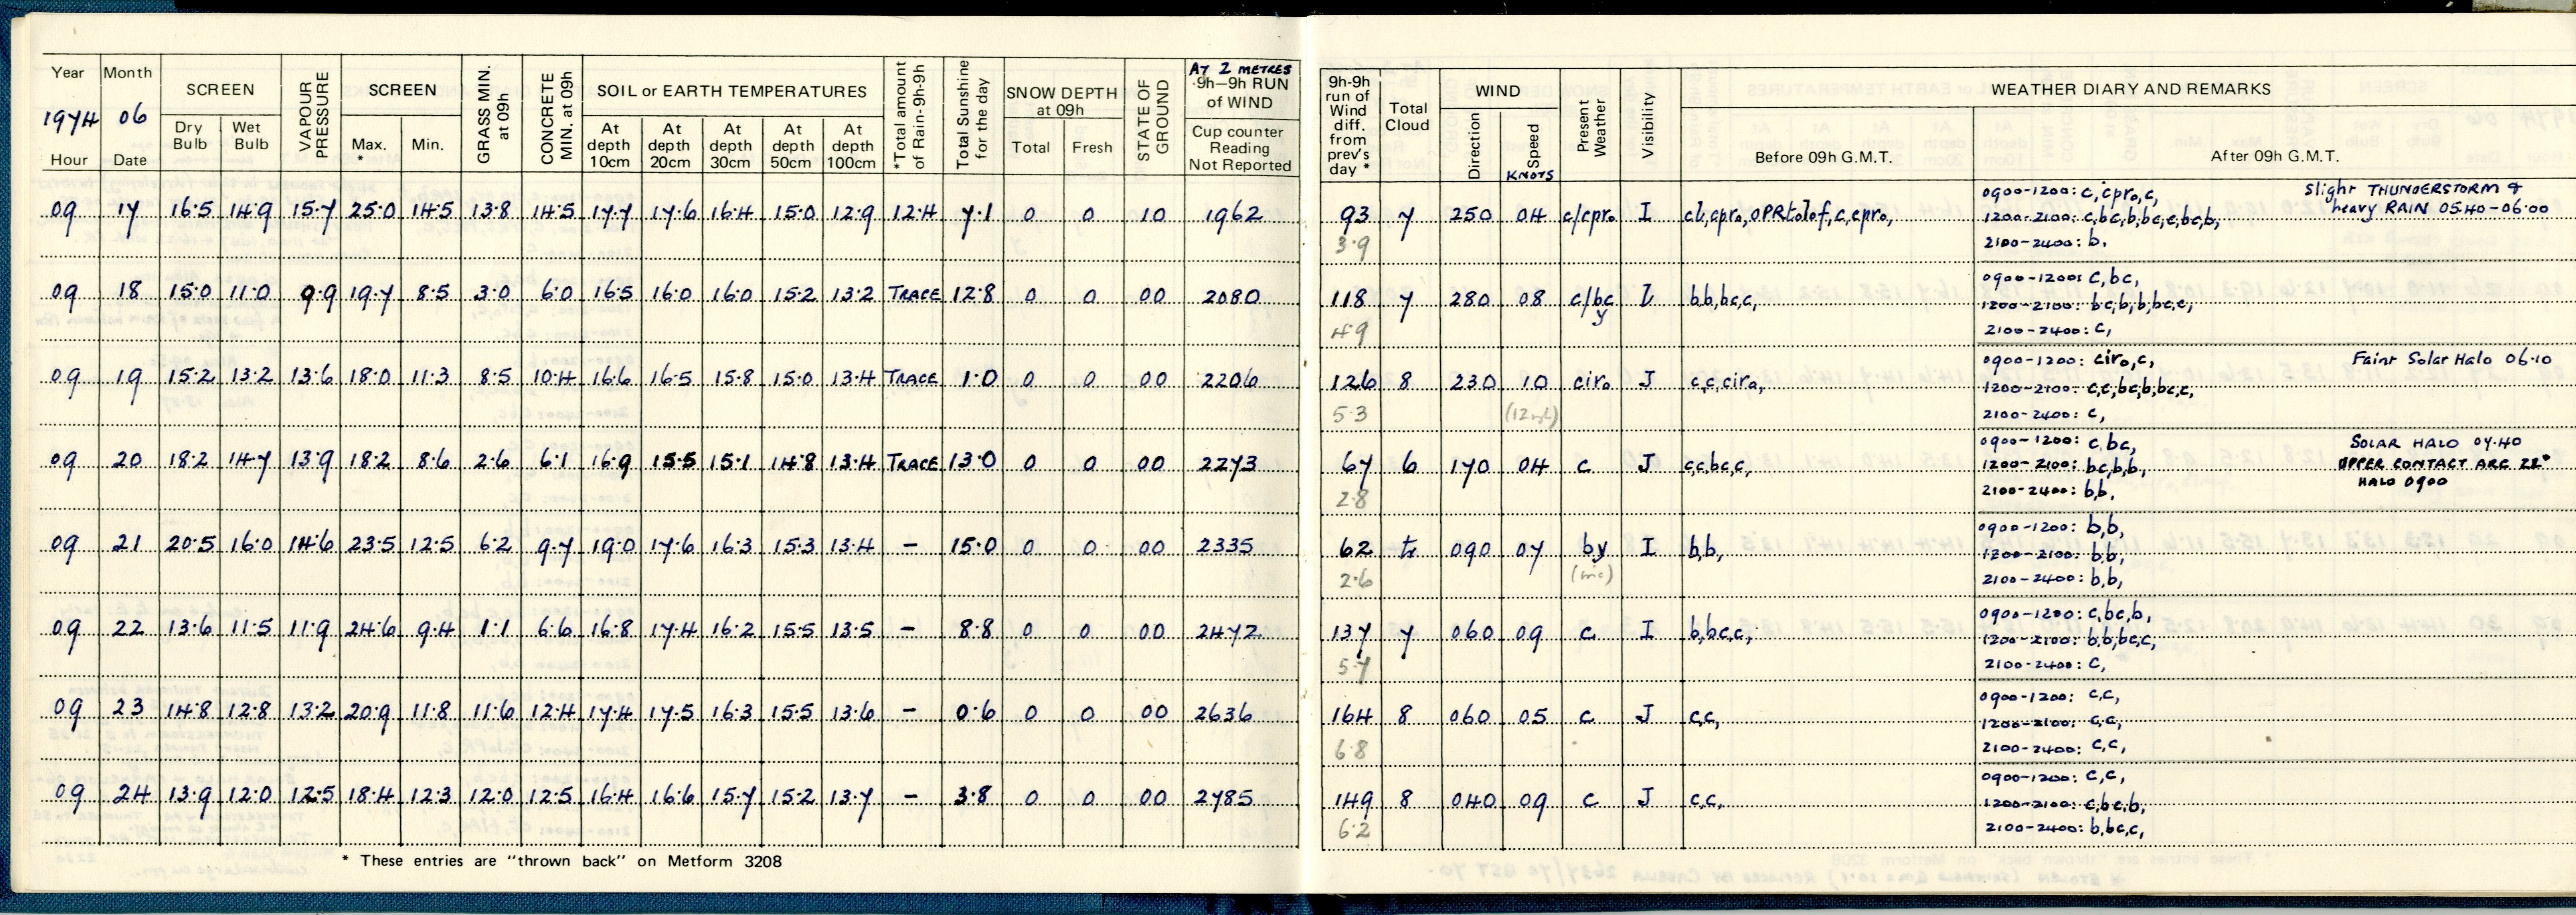 Year Month SCREEN VAPOUR PRESSURE SCREEN GRASS MIN. at 09h CONCRETE MIN. at 09h SOIL or EARTH TEMPERATURES *Total amount of Rain-9h-9h Total Sunshine for the day SNOW DEPTH at 09h STATE OF GROUND AT 2 METRES 9h–9h RUN of WIND
1974 06
Hour Date Dry Bulb Wet Bulb Max. * Min. At depth 10cm At depth 20cm At depth 30cm At depth 50cm At depth 100cm Total Fresh Cup counter Reading Not Reported
09 17 16.5 14.9 15.7 25.0 14.5 13.8 14.5 17.7 17.6 16.4 15.0 12.9 12.4 7.1 0 0 10 1962
09 18 15.0 11.0 9.9 19.7 8.5 3.0 6.0 16.5 16.0 16.0 15.2 13.2 TRACE 12.8 0 0 00 2080
09 19 15.2 13.2 13.6 18.0 11.3 8.5 10.4 16.6 16.5 15.8 15.0 13.4 TRACE 1.0 0 0 00 2206
09 20 18.2 14.7 13.9 18.2 8.6 2.6 6.1 16.9 15.5 15.1 14.8 13.4 TRACE 13.0 0 0 00 2273
09 21 20.5 16.0 14.6 23.5 12.5 6.2 9.7 19.0 17.6 16.3 15.3 13.4 – 15.0 0 0 00 2335
09 22 13.6 11.5 11.9 24.6 9.4 1.1 6.6 16.8 17.4 16.2 15.5 13.5 – 8.8 0 0 00 2472
09 23 14.8 12.8 13.2 20.9 11.8 11.6 12.4 17.4 17.5 16.3 15.5 13.6 – 0.6 0 0 00 2636
09 24 13.9 12.0 12.5 18.4 12.3 12.0 12.5 16.4 16.6 15.7 15.2 13.7 – 3.8 0 0 00 2785
* These entries are "thrown back" on Metform 3208
9h-9h run of Wind diff. from prev's day * Total Cloud WIND Present Weather Visibility WEATHER DIARY AND REMARKS
Direction Speed KNOTS Before 09h G.M.T. After 09h G.M.T.
0900-1200: c,cpro,c, slight THUNDERSTORM &
93 7 250 04 c/cpro I cl,cpro,OPRtolof,c,cpro, 1200-2100: c,bc,b,bc,c,bc,b, heavy RAIN 05.40-06.00
3.9 2100-2400: b,
0900-1200: c,bc,
118 7 280 08 c/bc y b,b,bc,c, 1200-2100: bc,b,b,bc,c,
4.9 2100-2400: c,
0900-1200: ciro,c, Faint Solar Halo 06.10
126 8 230 10 ciro J c,c,ciro, 1200-2100: c,c,bc,b,bc,c,
5.3 2100-2400: c,
0900-1200: c,bc, SOLAR HALO 07.40
67 6 170 04 c J c,c,bc,c, 1200-2100: bc,b,b, UPPER CONTACT ARC 22°
2.8 2100-2400: b,b, HALO 0900
0900-1200: b,b,
62 tr 090 07 by I b,b, 1200-2100: b,b,
2.6 2100-2400: b,b,
0900-1200: c,bc,b,
137 7 060 09 c I b,bc,c, 1200-2100: b,b,bc,c,
5.7 2100-2400: c,
0900-1200: c,c,
164 8 060 05 c J c,c, 1200-2100: c,c,
6.8 2100-2400: c,c,
0900-1200: c,c,
149 8 040 09 c J c,c, 1200-2100: c,bc,b,
6.2 2100-2400: b,bc,c,